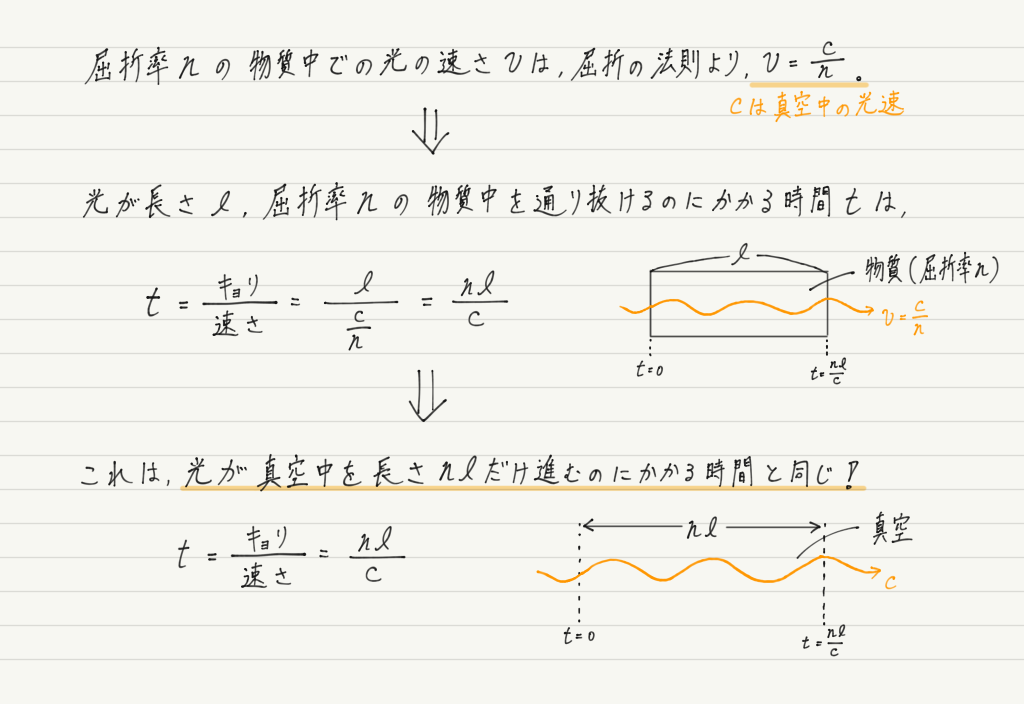 屈折率nの物質中での光の速さvは,屈折の法則より, v = c/n 。
cは真空中の光速
光が長さl, 屈折率nの物質中を通り抜けるのにかかる時間tは,
t = キョリ/速さ = l/(c/n) = nl/c
l
物質(屈折率n)
v = c/n
t=0
t= nl/c
これは, 光が真空中を長さnlだけ進むのにかかる時間と同じ!
t = キョリ/速さ = nl/c
nl
真空
c
t=0
t= nl/c